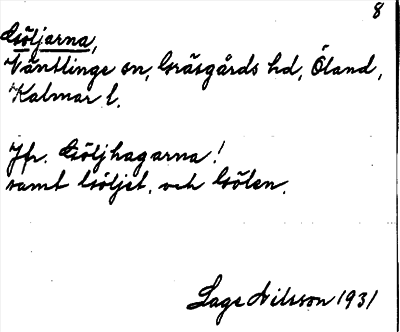 8
Göljarna,
Ventlinge sn, Gräsgårds hd, Öland,
Kalmar l.
Jfr. Göljhagarna!
samt Göljet, och Gölen.
Lage Nilsson 1931